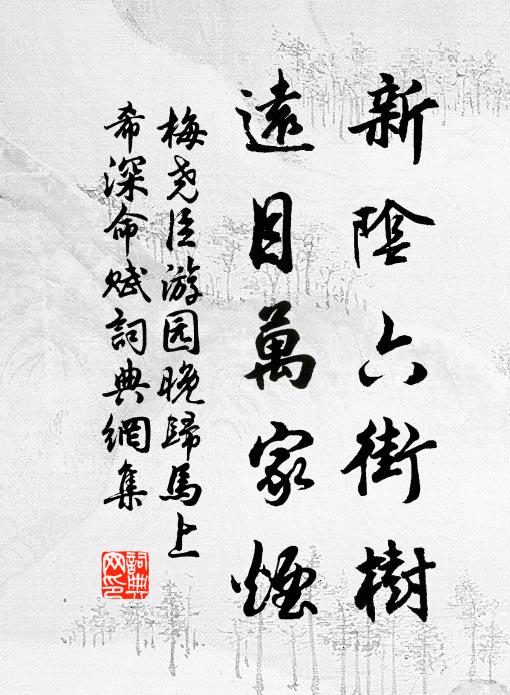 新陰六街樹
遠目萬家煙
梅堯臣游园晚歸馬上
希深命赋詞典網集
詞典
网印